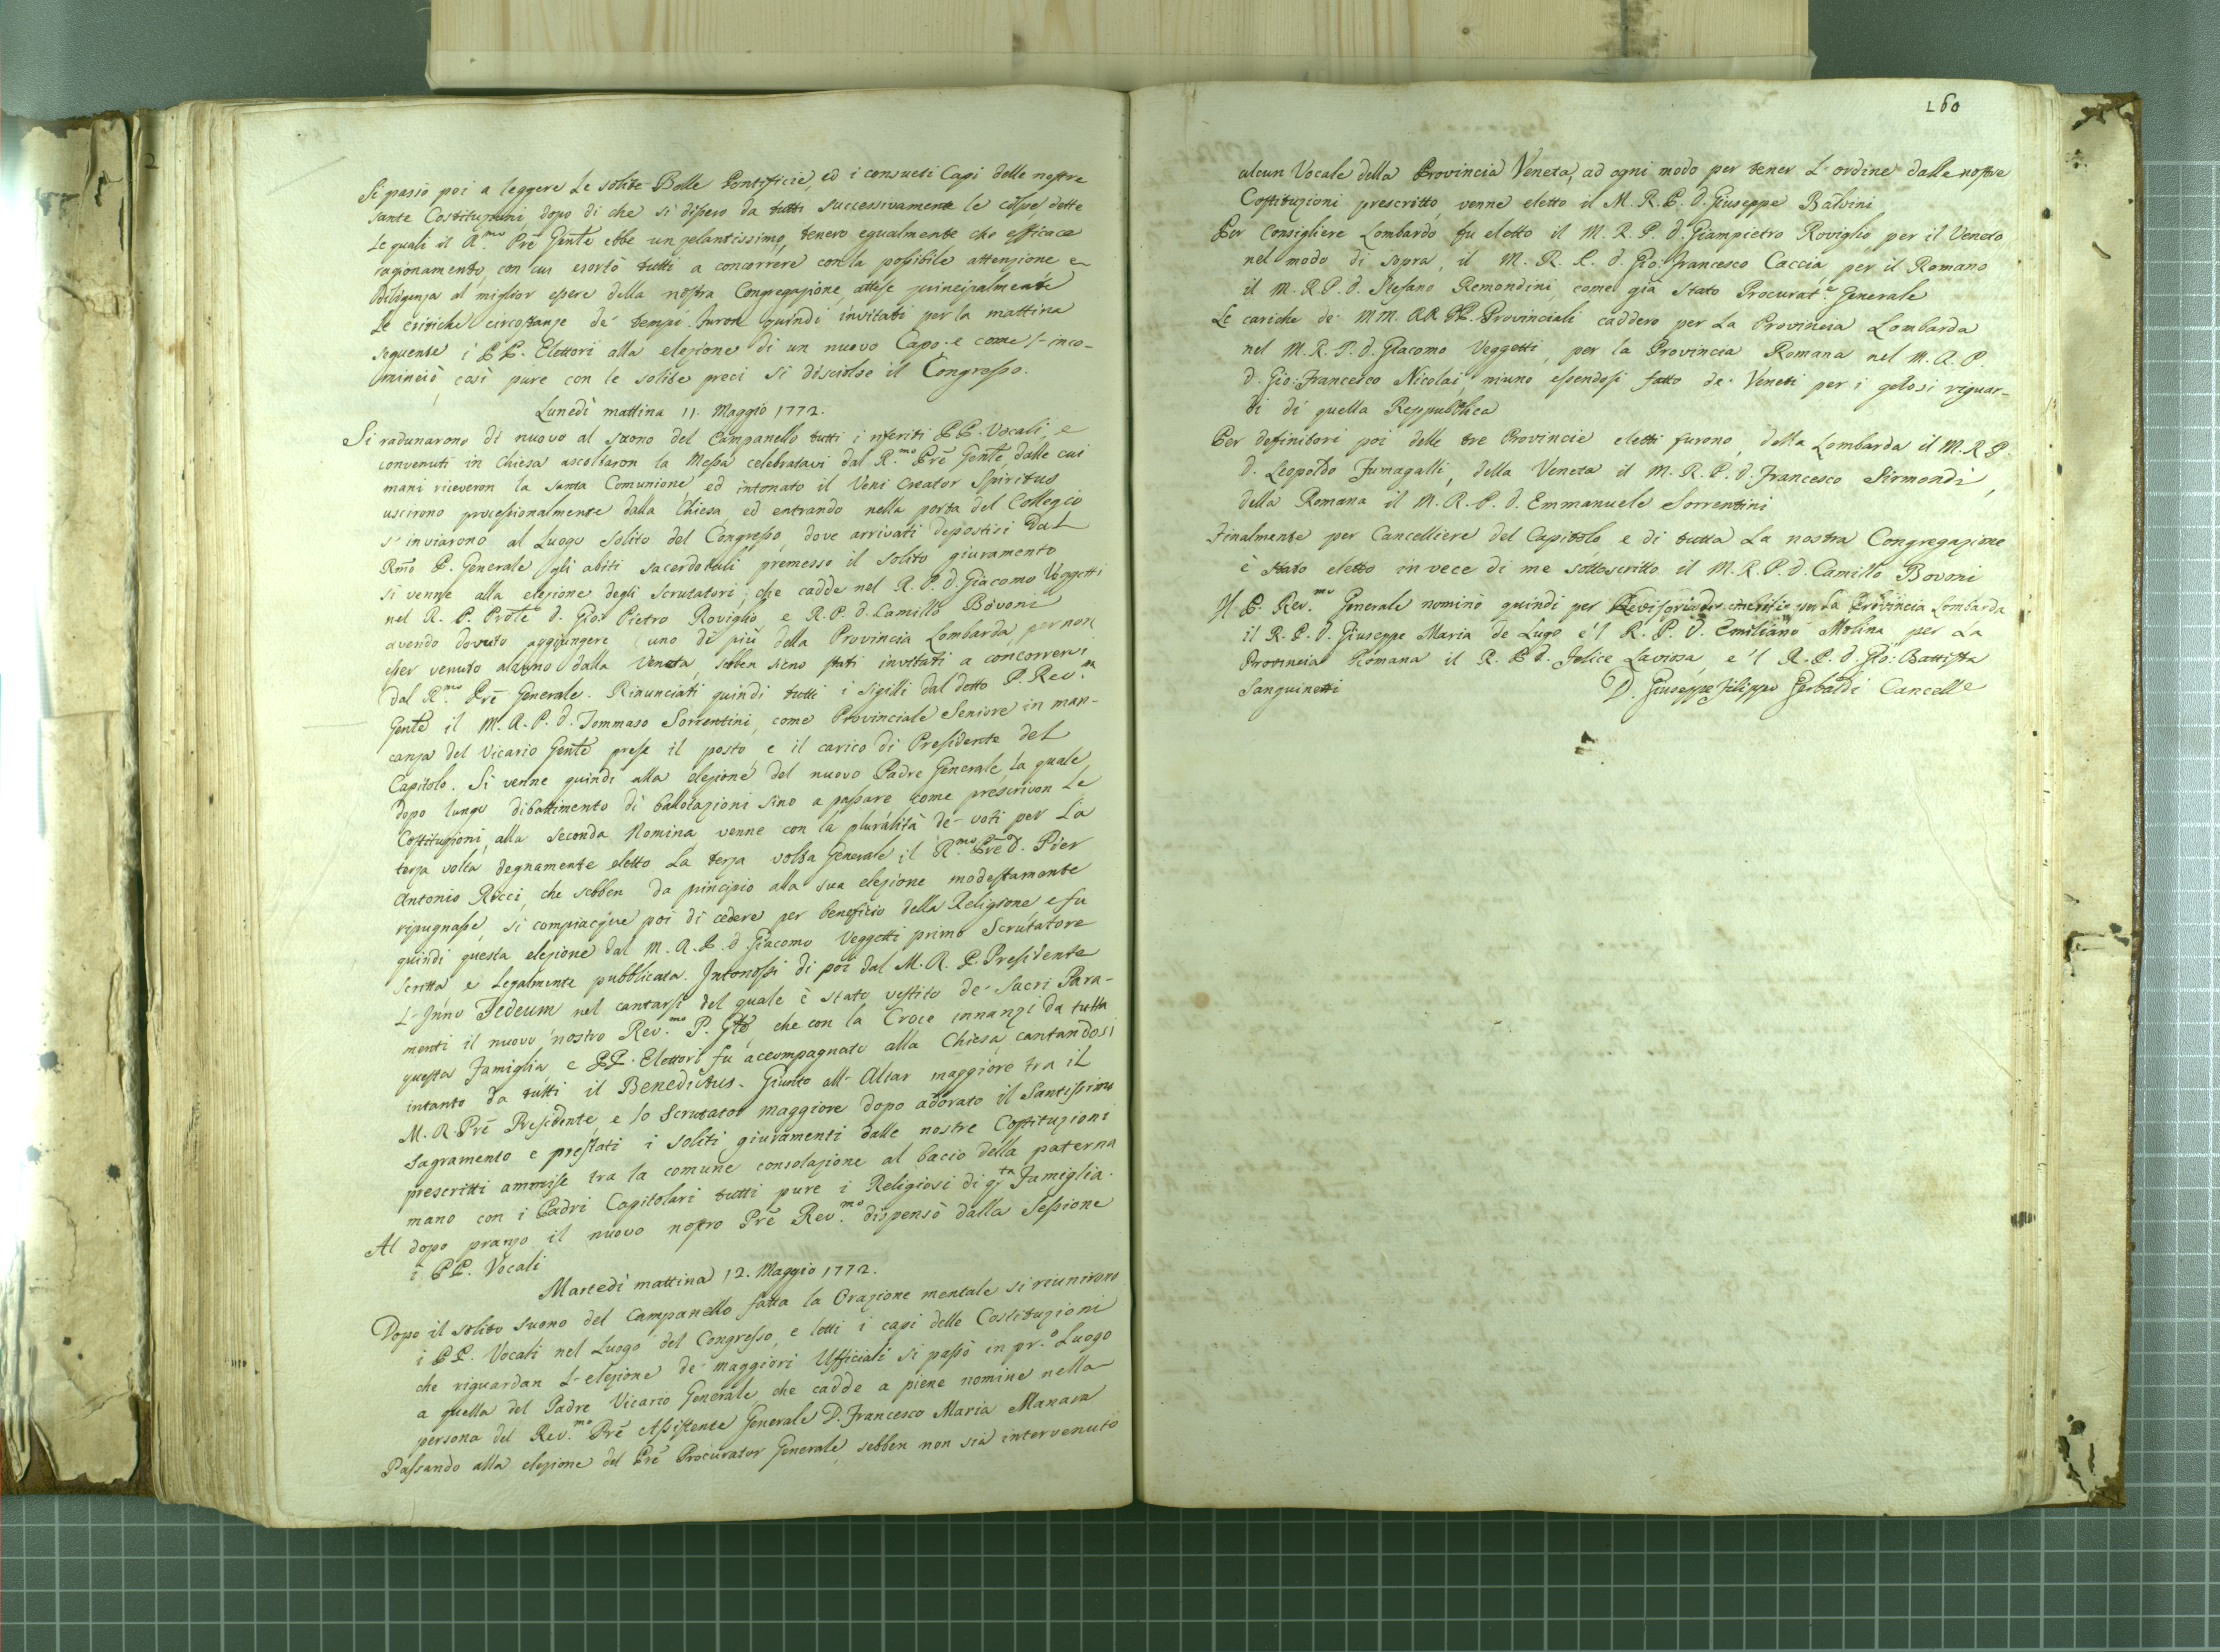 Si passò poi a leggere le solite Bolle Pontificie, ed i consueti Capi delle nostre
sante Costituzioni, dopo di che si dissero da tutti successivamente le colpe, dette
le quali il R.mo Prē Genle ebbe un zelantissimo, tenero egualmente che efficace
ragionamento, con cui esortò tutti a concorrere con la possibile attenzione e
diligenza al miglior essere della nostra Congregazione, attese principalmente
le critiche circostanze de' tempi. Furon quindi invitati per la mattina
seguente i PP. Elettori alla elezione di un nuovo Capo. e come s'inco-
minciò, così pure con le solite preci si disciolse il Congresso.
Lunedì mattina 11. Maggio 1772.
Si radunarono di nuovo al suono del Campanello tutti i riferiti PP. Vocali, e
convenuti in Chiesa ascoltaron la Messa celebratavi dal R.mo Prē Genle, dalle cui
mani riceveron la santa Comunione, ed intonato il Veni Creator Spiritus
uscirono processionalmente dalla Chiesa, ed entrando nella porta del Collegio
s'inviarono al Luogo solito del Congresso, dove arrivati depostisi dal
Rm̃o P. Generale gli abiti sacerdotali premesso il solito giuramento
si venne alla elezione degli Scrutatori, che cadde nel R. P. d. Giacomo Veggetti
nel R. P. Prõle d. Gio: Pietro Roviglio, e R. P. d. Camillo Bovoni
avendo dovuto aggiungere uno di più della Provincia Lombarda per non
esser venuto alcuno dalla Veneta, sebben sieno stati invitati a concorrervi
dal R.mo Prē Generale. Rinunciati quindi tutti i sigilli dal detto P. Rev.
Genle il M. R. P. d. Tommaso Sorrentini, come Provinciale Seniore in man-
canza del Vicario Genle prese il posto e il carico di Presidente del
Capitolo. Si venne quindi alla elezione del nuovo Padre Generale, la quale
dopo lungo dibattimento di ballotazioni sino a passare come prescrivon le
Costituzioni, alla seconda Nomina venne con la pluralità de' voti per la
terza volta degnamente eletto la terza volta Generale il R.mo Prē D. Pier
Antonio Ricci, che sebben da principio alla sua elezione modestamente
ripugnasse, si compiacque poi di cedere per beneficio della Religione e fu
quindi questa elezione dal M. R. P. d. Giacomo Veggetti primo Scrutatore
scritta e legalmente pubblicata. Intonossi di poi dal M. R. P. Presidente
L'Inno Tedeum nel cantarsi del quale è stato vestito de' Sacri Para-
menti il nuovo nostro Rev.mo P. Gle, che con la Croce innanzi da tutta
questa Famiglia e PP. Elettori fu accompagnato alla Chiesa, cantandosi
intanto da tutti il Benedictus. Giunto all'Altar maggiore tra il
M. R. Prē Presidente, e lo Scrutator maggiore dopo adorato il Santissimo
Sagramento e prestati i soliti giuramenti dalle nostre Costituzioni
prescritti ammise tra la comune consolazione al bacio della paterna
mano con i Padri Capitolari tutti pure i Religiosi di q.ta Famiglia.
Al dopo pranzo il nuovo nostro Prē Rev.mo dispensò dalla Sessione
i PP. Vocali
Martedì mattina 12. Maggio 1772.
Dopo il solito suono del Campanello fatta la Orazione mentale si riunirono
i PP. Vocali nel Luogo del Congresso, e letti i capi delle Costituzioni
che riguardan L'elezione de' maggiori Ufficiali si passò in pr.o Luogo
a quella del Padre Vicario Generale, che cadde a piene nomine nella
persona del Rev.mo Prē Assistente Generale D. Francesco Maria Manara
Passando alla elezione del Prē Procurator Generale, sebben non sia intervenuto
160
alcun Vocale della Provincia Veneta, ad ogni modo per tener L'ordine dalle nostre
Costituzioni prescritto, venne eletto il M. R. P. d. Giuseppe Balvini
Per Consigliere Lombardo fu eletto il M. R. P. d. Giampietro Roviglio per il Veneto
nel modo di sopra, il M. R. P. d. Gio: Francesco Caccia, per il Romano
il M. R. P. d. Stefano Remondini, come già stato Procurat.e Generale
Le cariche de' MM. RR. PP. Provinciali caddero per la Provincia Lombarda
nel M. R. P. d. Giacomo Veggetti, per la Provincia Romana nel M. R. P.
d. Gio: Francesco Nicolai, niuno essendosi fatto de' Veneti per i gelosi riguar-
di di quella Reppubblica
Per definitori poi delle tre Provincie eletti furono, della Lombarda il M. R. P.
d. Leopoldo Fumagalli, della Veneta il M. R. P. d. Francesco Sirmondi,
della Romana il M. R. P. d. Emmanuele Sorrentini
Finalmente per Cancelliere del Capitolo, e di tutta la nostra Congregazione
è stato eletto in vece di me sottoscritto il M. R. P. d. Camillo Bovoni
Il P. Rev.mo Generale nominò quindi per Revisori per la Provincia Lombarda
il R. P. d. Giuseppe Maria de Lugo e'l R. P. d. Emiliano Molina per la
Provincia Romana il R. P. d. Felice Laviosa, e'l R. P. d. Gio: Battista
Sanguinetti
D. Giuseppe Filippo Gerbaldi Cancelle